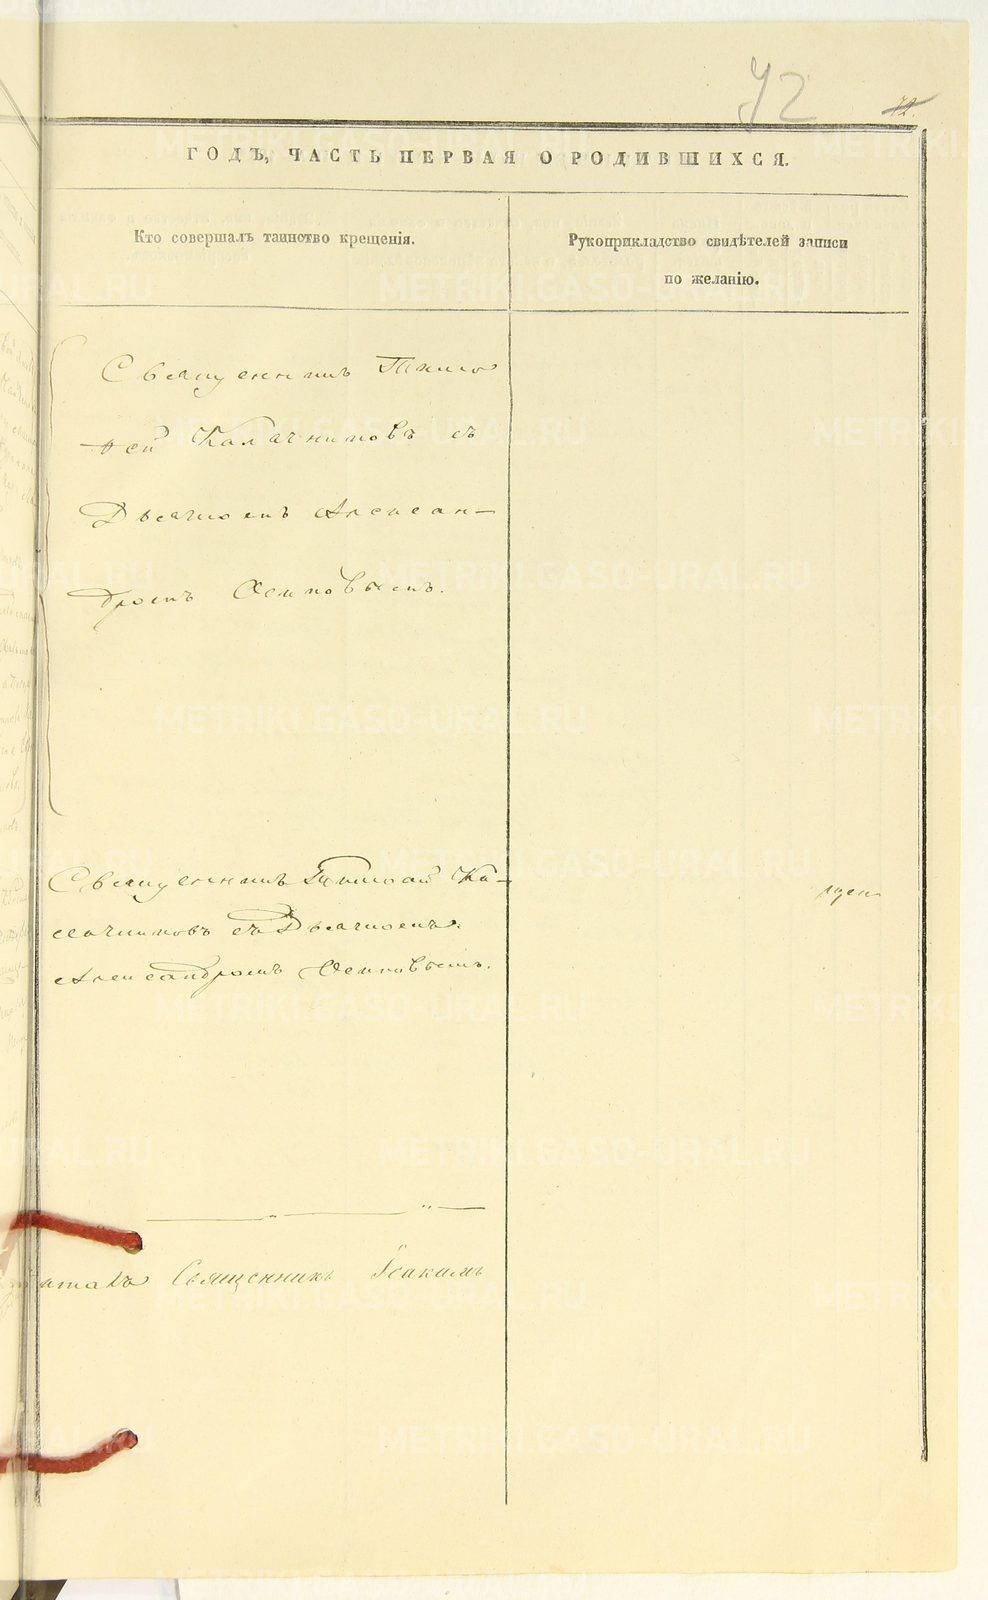 72
72.
ГОДЪ, ЧАСТЬ ПЕРВАЯ О РОДИВШИХСЯ.
Кто совершалъ таинство крещенія.
Рукоприкладство свидѣтелей записи
по желанію.
Священникъ Тимо
ѳей Калачниковъ съ
Дьячкомъ Алексан-
дромъ Осиповымъ.
Священникъ Тимоѳей Ка-
лачниковъ съ Дьячкомъ
Александромъ Осиповымъ.
Священникъ Іоакимъ
METRIKI.GASO-URAL.RU